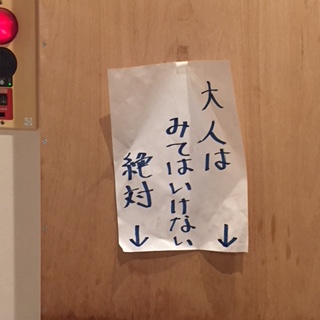 大人は↓
みてはいけない
絶対↓